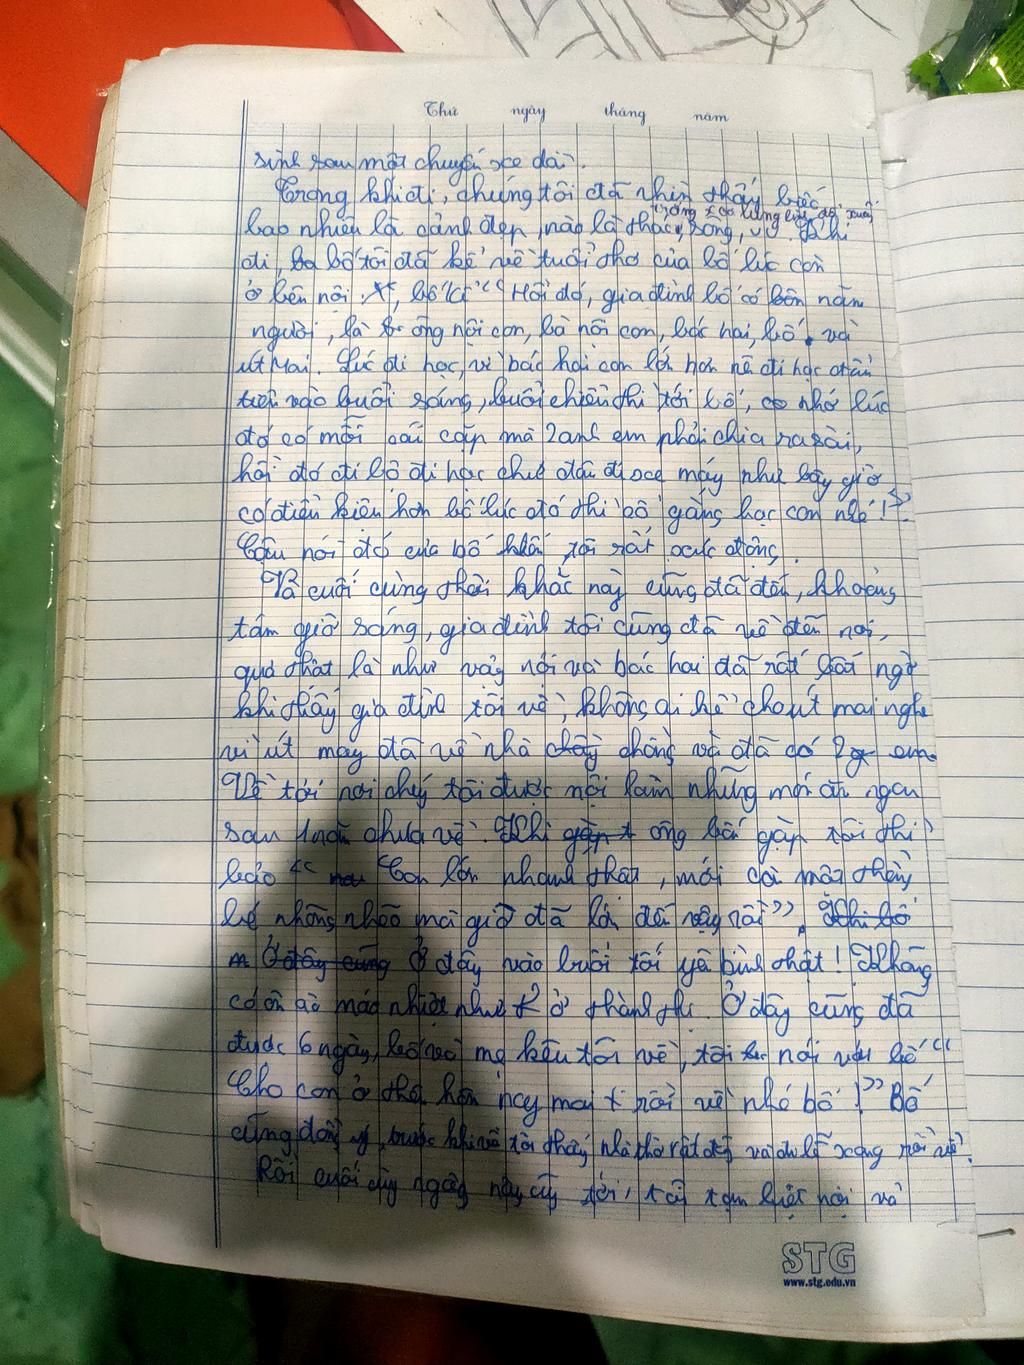 Thứ ngày tháng năm
sinh sau một chuyến xe dài.
Trong khi đi, chúng tôi đã nhìn thấy biết
bao nhiên là cảnh đẹp, nào là thác, sông, Khi
đi, bố tôi đã kể về tuổi thơ của bố lúc còn
ở bên nội, bố kể “ Hồi đó, gia đình bố có bốn năm
người, là ông nội con, bà nội con, bác hai, bố và
út Mai. Lúc đi học, vì bác hai con lớn hơn nê đi học đầu
tiên vào buổi sáng, buổi chiều thì tới bố, nhớ lúc
đó có mỗi cái cặp mà 2 anh em phải chia ra xài,
hồi đó đi bộ đi học chứ đâu đi xe máy như bây giờ
có điều kiện hơn bố lúc đó thì cố gắng học con nhé!”.
Câu nói đó của bố khiến tôi rất xúc động.
Và cuối cùng thời khắc này cũng đã đến, khoảng
tám giờ sáng, gia đình tôi cũng đã về đến nơi,
quả thật là như vậy nội và bác hai đã rất bất ngờ
khi thấy gia đình tôi về, không ai hề cho út mai nghe
vì út may đã về nhà chồng và đã có 2 em
Về tới nơi chúng tôi được nội làm những món ăn ngon
sau 1 năm chưa về. Khi gặp ông bác gặp tôi thì
bảo “ Con lớn nhanh thật, mới còn một thằng
bé nhõng nhẽo mà giờ đã lớn đến nây rồi”. Khi bố
Ở đây cũng Ở đây vào buổi tối yên bình thật! Không
có ồn ào náo nhiệt như ở thành thị. Ở đây cũng đã
được 6 ngày, bố và mẹ kêu tôi về, tôi nói với bố “
Cho con ở thêm hôm nay mai rồi về nhé bố!” Bố
cũng đồng ý, trước khi về tôi thấy nhà thờ rất đẹp và dự lễ xong rồi về.
Rồi cuối cùng ngày này cũng tới, tôi tạm biệt nội và
STG
www.stg.edu.vn